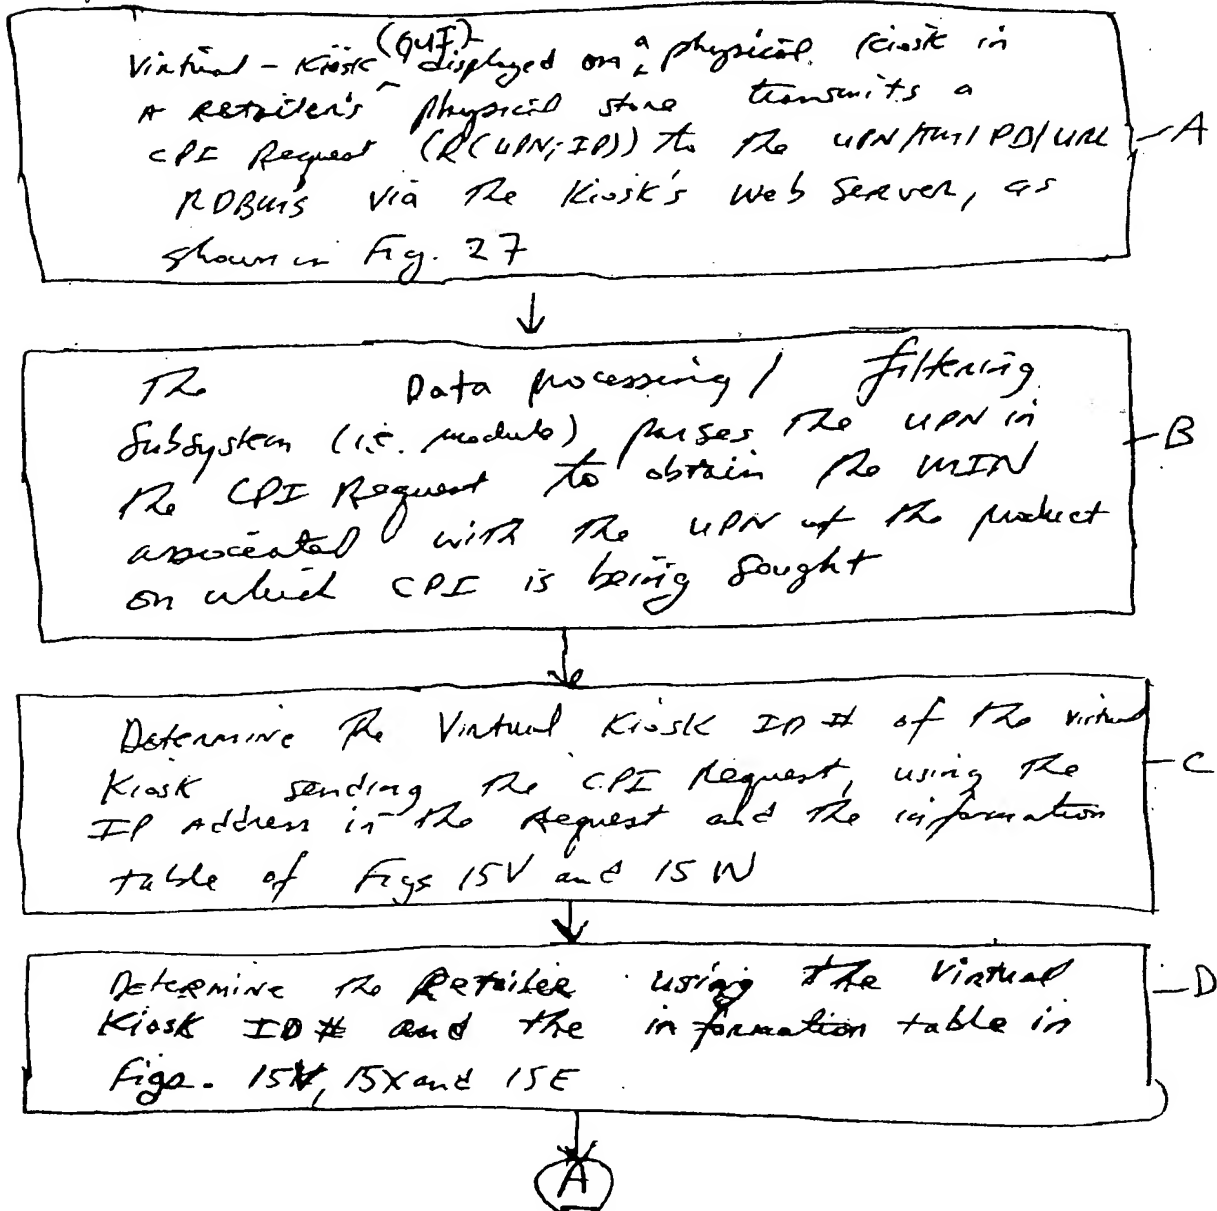 (GUI)
Virtual-Kiosk ^ displayed on ^ a physical Kiosk in
A Retailer's physical store transmits a
CPI Request (R(UPN; IP)) to the UPN/TM/PD/URL
RDBMS via the Kiosk's Web Server, as
shown in Fig. 27
A
The Data processing / filtering
Subsystem (i.e. module) parses the UPN in
the CPI Request to obtain the MIN
associated with the UPN of the product
on which CPI is being sought
B
Determine the Virtual Kiosk ID # of the virtual
Kiosk sending the CPI Request, using the
IP Address in the Request and the information
table of Figs 15V and 15W
C
Determine the Retailer using the Virtual
Kiosk ID # and the information table in
Figs. 15W, 15X and 15E
D
A